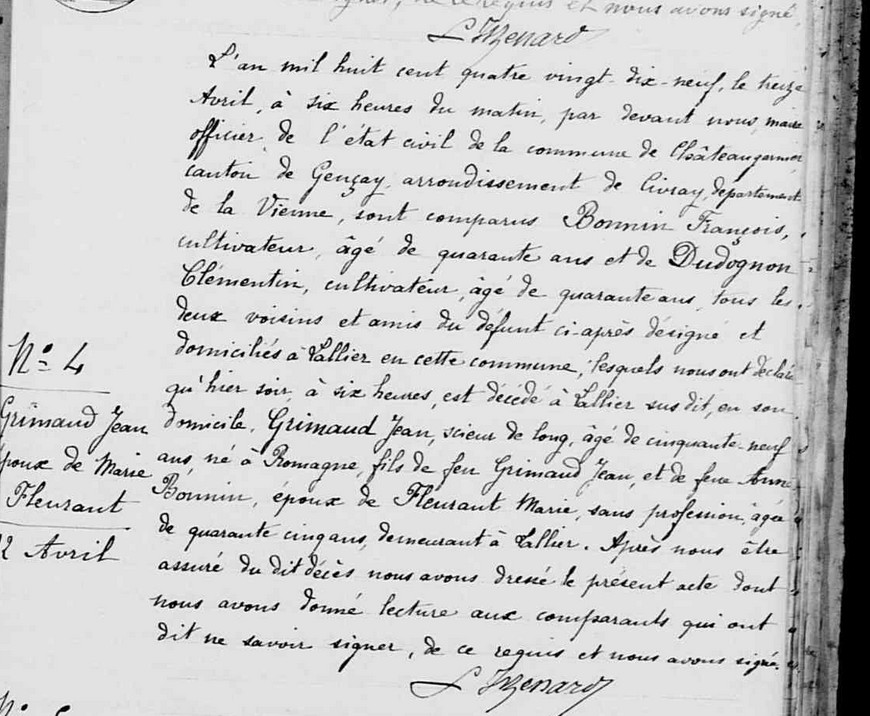 de ce requis et nous avons signé,
L'an mil huit cent quatre vingt-dix-neuf, le treize
Avril, à six heures du matin, par devant nous, maire
officier de l'état civil de la commune de Châteaugarnier
canton de Gençay, arrondissement de Civray, département
de la Vienne, sont comparus Bonnin François,
cultivateur, âgé de quarante ans et de Dudognon
Clémentin, cultivateur, âgé de quarante ans, tous les
deux voisins et amis du défunt ci-après désigné et
domiciliés à Vallier en cette commune, lesquels nous ont déclaré
qu'hier soir, à six heures, est décédé à Vallier susdit, en son
domicile, Grimaud Jean, scieur de long, âgé de cinquante-neuf
ans, né à Romagne, fils de feu Grimaud Jean, et de feue Anne
Bonnin, époux de Fleurant Marie, sans profession, âgée
de quarante cinq ans, demeurant à Vallier. Après nous être
assuré du dit décès nous avons dressé le présent acte dont
nous avons donné lecture aux comparants qui ont
dit ne savoir signer, de ce requis et nous avons signé.
No 4
Grimaud Jean
époux de Marie
Fleurant
12 Avril